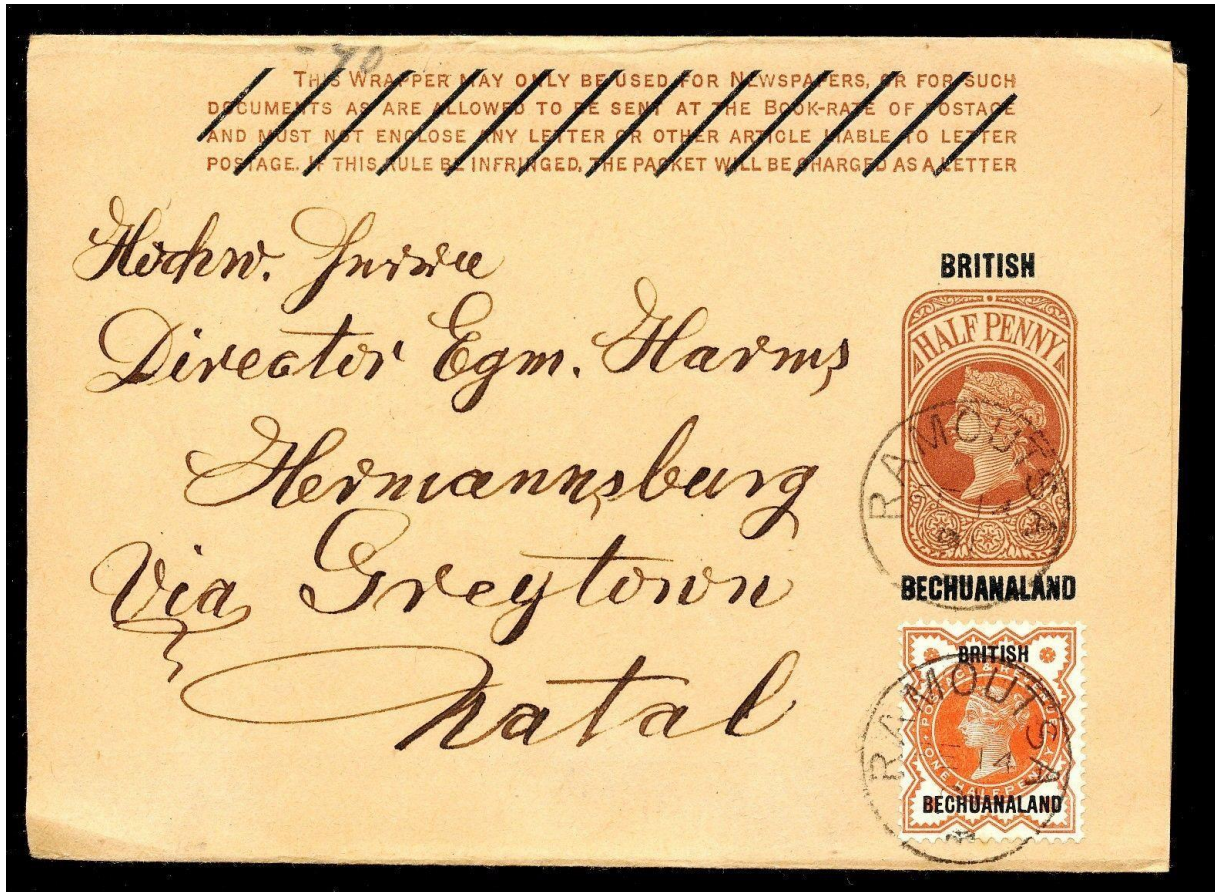 - 40
THIS WRAPPER MAY ONLY BE USED FOR NEWSPAPERS, OR FOR SUCH
DOCUMENTS AS ARE ALLOWED TO BE SENT AT THE BOOK-RATE OF POSTAGE
AND MUST NOT ENCLOSE ANY LETTER OR OTHER ARTICLE LIABLE TO LETTER
POSTAGE. IF THIS RULE BE INFRINGED, THE PACKET WILL BE CHARGED AS A LETTER
Hochw. Herrn
Director Egm. Harms,
Hermannsburg
Via Greytown
Natal
BRITISH
HALF PENNY
RAMOUTSA
14
BECHUANALAND
BRITISH
POSTAGE & REVENUE
ONE HALFPENNY
RAMOUTSA
14
BECHUANALAND